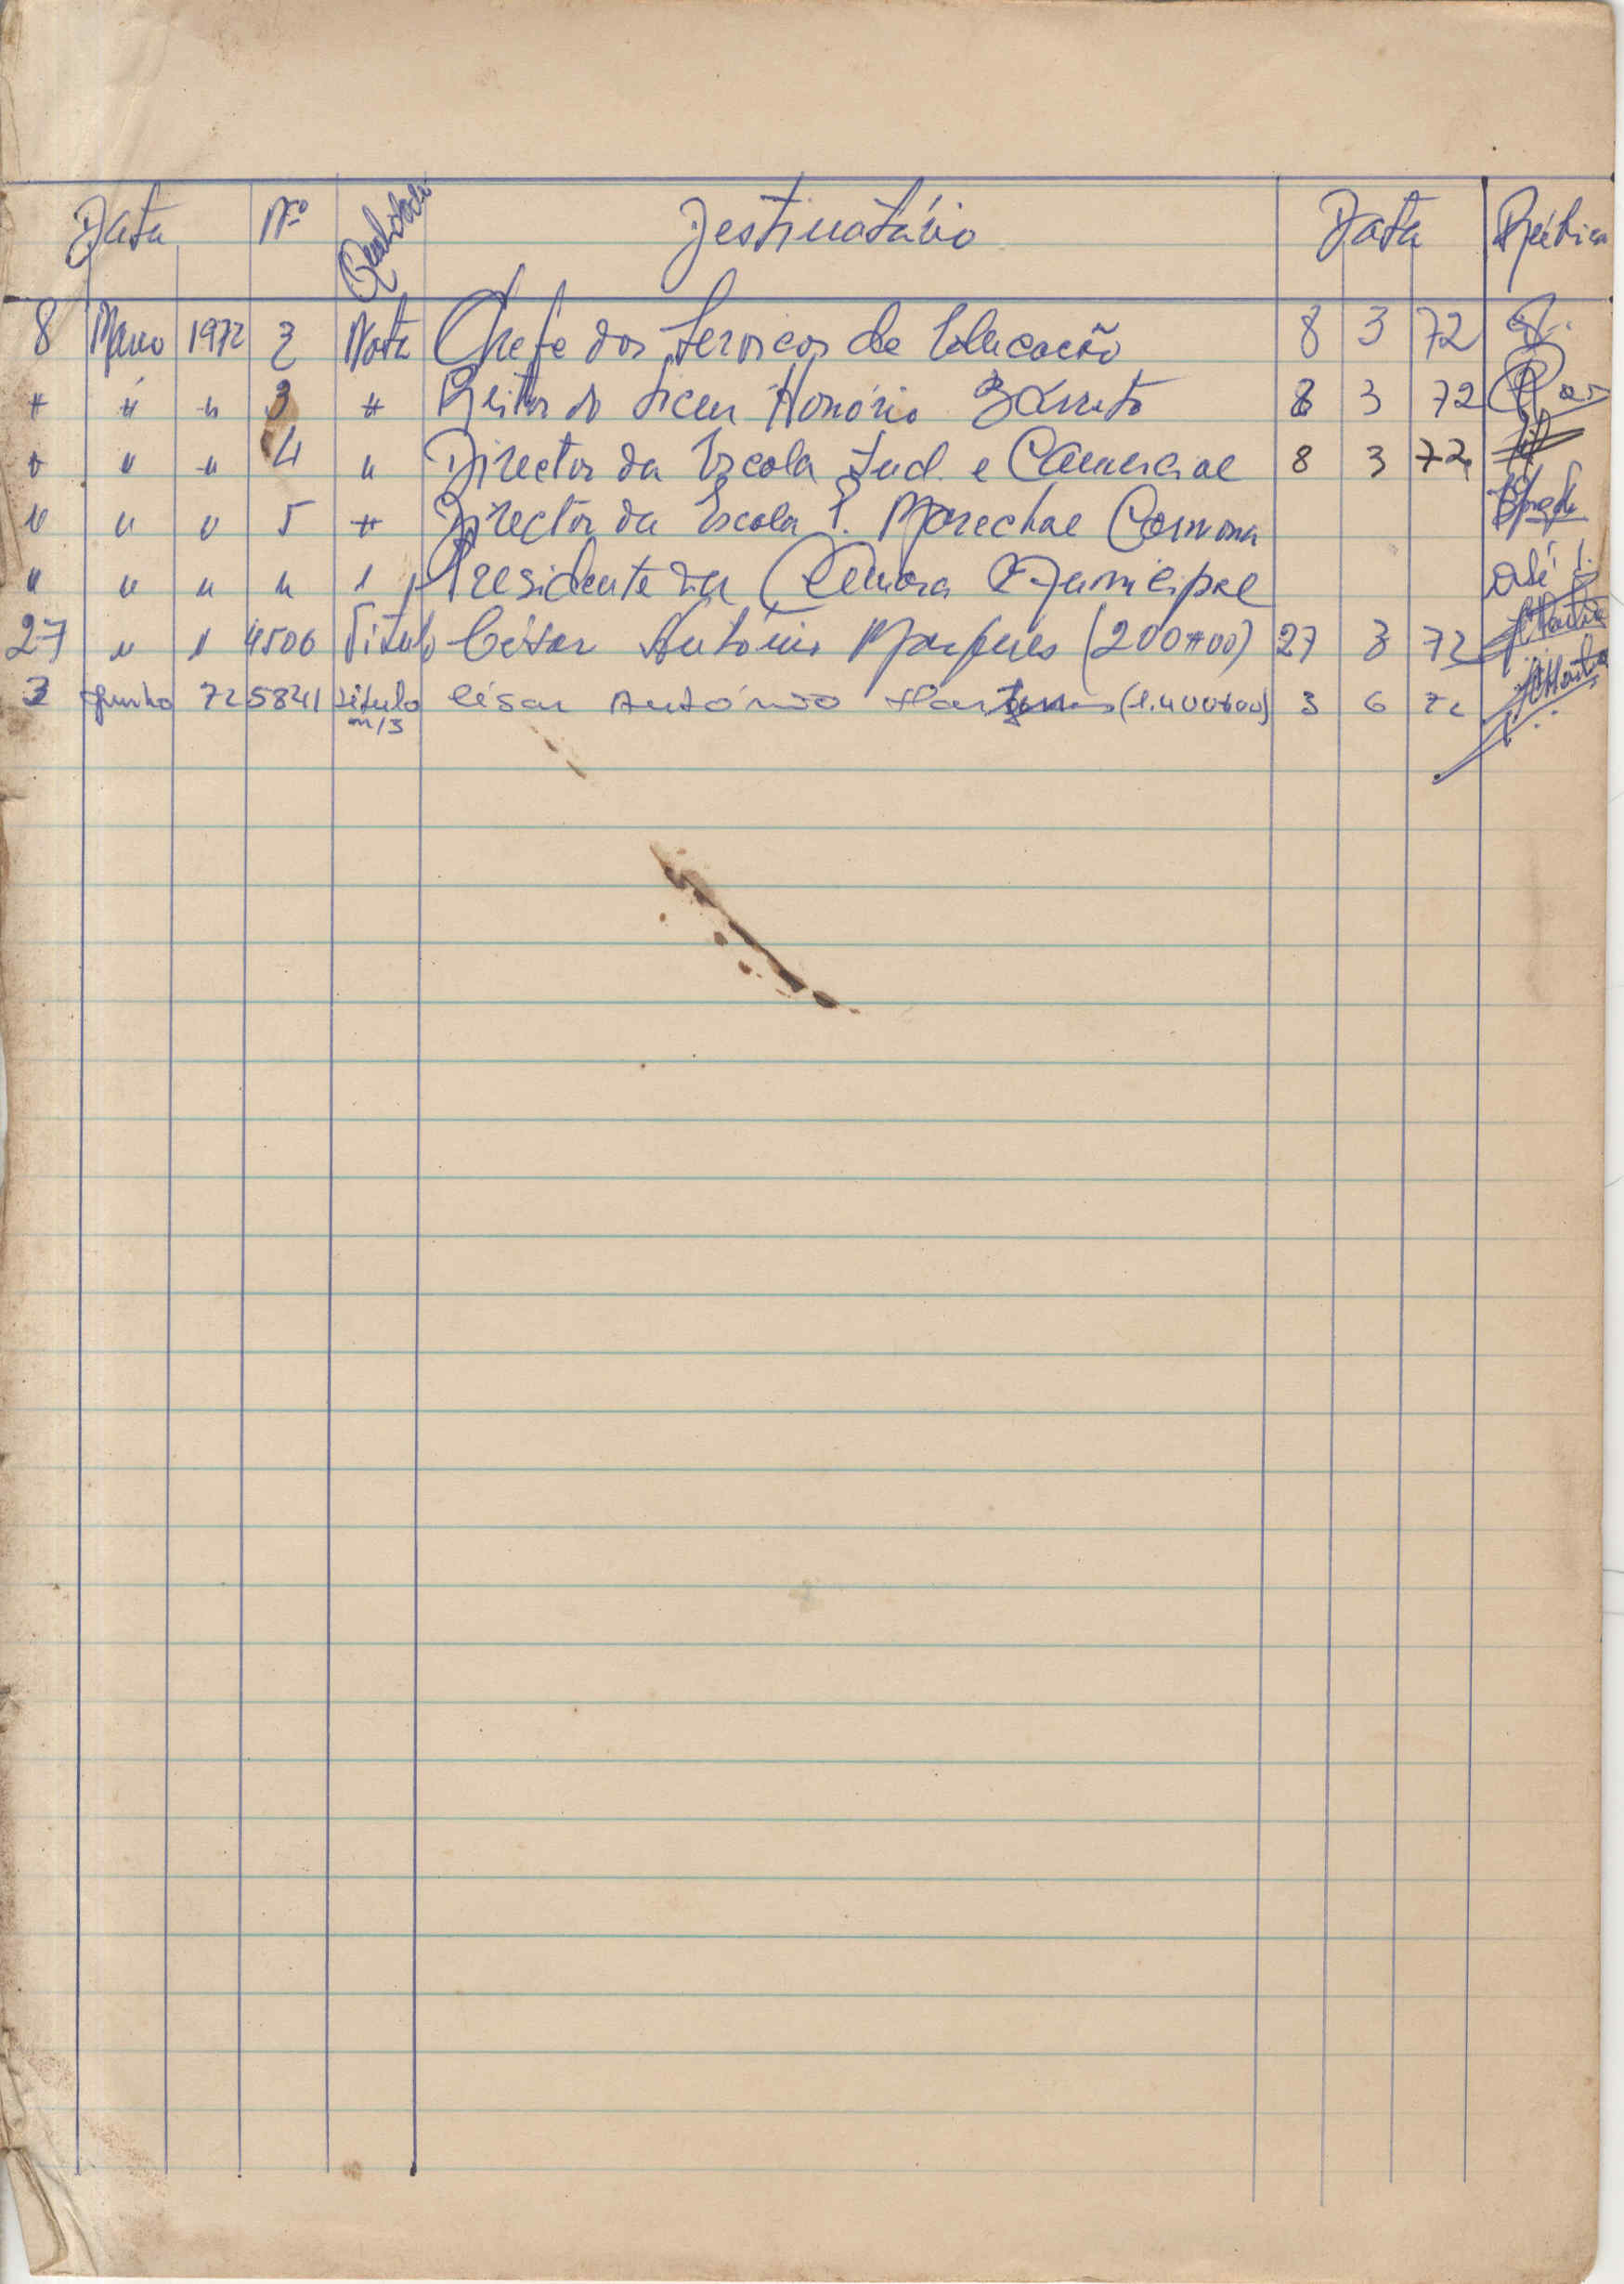 Data Nº Qualidade Destinatário Data Rúbrica
8 Março 1972 2 Nota Chefe dos Serviços de Educação 8 3 72
" " " 3 " Reitor do Liceu Honório Barreto 8 3 72
" " " 4 " Director da Escola Ind. e Comercial 8 3 72
" " " 5 " Director da Escola P. Marechal Carmona
" " " " " Presidente da Câmara Municipal
27 " " 4506 Título César António Marques (200$00) 27 3 72
3 Junho 72 5841 Título César António (1.400$00) 3 6 72
m/3